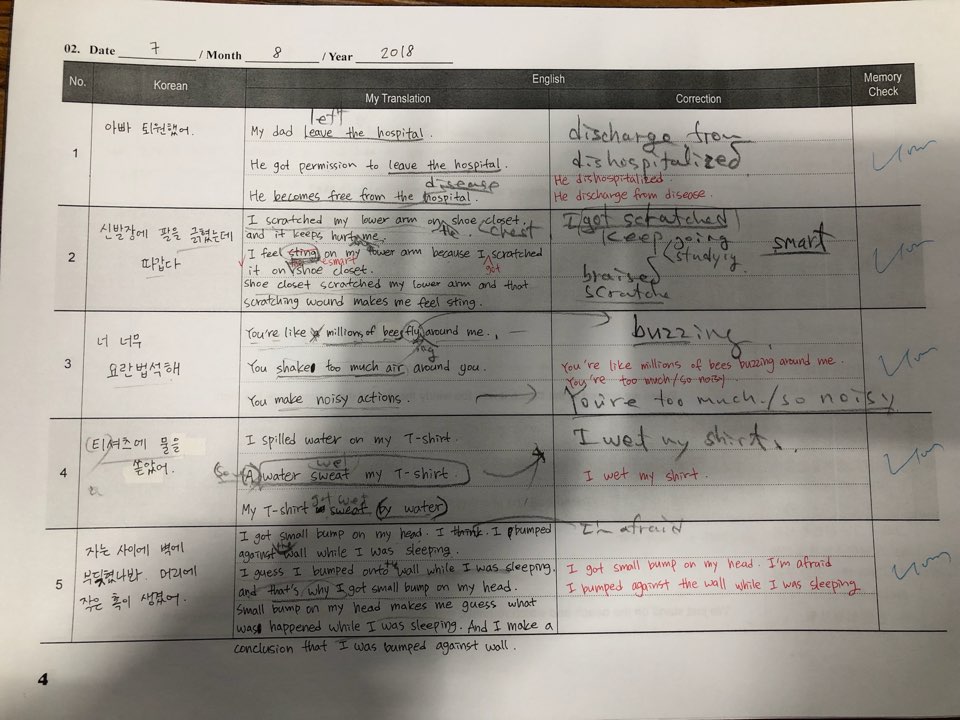 02. Date 7 / Month 8 / Year 2018
No. Korean English Memory Check
My Translation Correction
1
아빠 퇴원했어.
left
My dad leave the hospital.
He got permission to leave the hospital.
disease
He becomes free from the hospital.
discharge from
dishospitalized
He dishospitalized.
He discharge from disease.
2
신발장에 팔을 긁혔는데
따갑다
I scratched my lower arm on shoe closet.
the chest
and it keeps hurt me.
I feel sting on my lower arm because I scratched
smart
got
it on shoe closet.
shoe closet scratched my lower arm and that
scratching wound makes me feel sting.
I got scratched
keep going
studyig
smart
braised
scratche
3
너 너무
요란법석해
You're like millions of bees fly around me.
ing
You shake too much air around you.
You make noisy actions.
buzzing
You're like millions of bees buzzing around me.
You're too much/so noisy.
You're too much/so noisy
4
티셔츠에 물을
쏟았어.
I spilled water on my T-shirt.
wet
(A) water sweat my T-shirt
got wet
My T-shirt is sweat (by water)
I wet my shirt.
I wet my shirt.
5
자는 사이에 벽에
부딪혔나봐. 머리에
작은 혹이 생겼어.
I got small bump on my head. I think I bumped
against the wall while I was sleeping.
I guess I bumped onto the wall while I was sleeping.
and that's why I got small bump on my head.
Small bump on my head makes me guess what
was happened while I was sleeping. And I make a
conclusion that I was bumped against wall.
I'm afraid
I got small bump on my head. I'm afraid
I bumped against the wall while I was sleeping
4